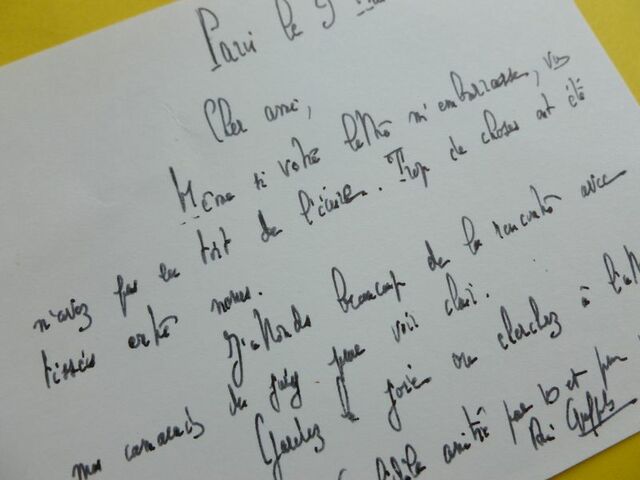 Paris le 9
Cher ami,
Même si votre lettre m'embarrasse, vous
n'avez pas eu tort de l'écrire. Trop de choses ont été
tissées entre nous. J'attends beaucoup de la rencontre avec
mes camarades du pour voir clair.
Gardez ou cherchez à
amitié pour et pour